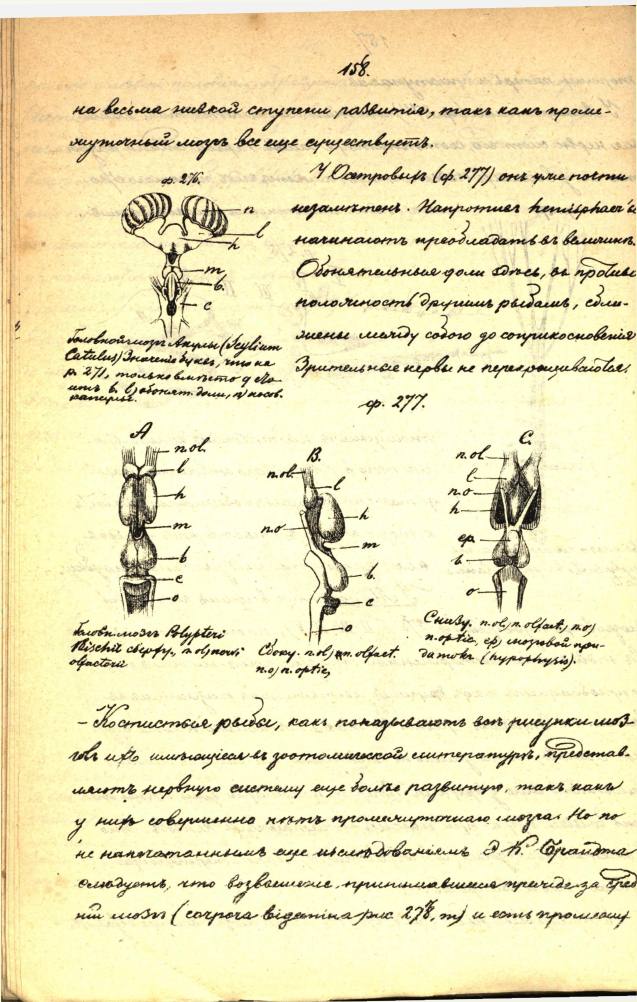 158.
на весьма низкой ступени развитія, такъ какъ проме-
жуточный мозгъ все еще существуетъ.
ф. 276.
n
l
h
m
b.
c
Головной мозгъ Акулы (Scylium
Catulus) Значеніе буквъ, что на
р. 271, только вмѣсто g
b. l) обонят. доли, n)
У Осетровыхъ (ф. 277) онъ уже почти
незамѣтенъ. Напротивъ hemisphaer'ы
начинаютъ преобладать въ величинѣ.
Обонятельныя доли здѣсь, въ противу
положность другимъ рыбамъ, сбли-
жены между собою до соприкосновенія
Зрительные нервы не перекрещиваются.
ф. 277.
A
n.ol.
l
h
m
b
c
o
Головн. мозгъ Polypteri
Bischir сверху, n.ol) nervi
olfactorii
B.
n.ol.
l
n.o
h
m
b.
c
o
Сбоку. n.ol) n. olfact.
n.o) n.optic,
C.
n.ol.
l
n.o
h
ep
b.
o
Снизу. n.ol) n.olfact, n.o)
n.optic, ep) мозговой при-
датокъ (hypophysis).
— Костистыя рыбы, какъ показываютъ всѣ рисунки моз-
говъ ихъ имѣющіеся въ зоотомической литературѣ, представ-
ляютъ нервную систему еще болѣе развитую, такъ какъ
у нихъ совершенно нѣтъ промежуточнаго мозга. Но по
не напечатаннымъ еще изслѣдованіямъ Э К. Брандта
слѣдуетъ, что возвышеніе, принимавшееся прежде за сред
ній мозгъ (сверху видѣнъ на рис 278, m) и есть промежу